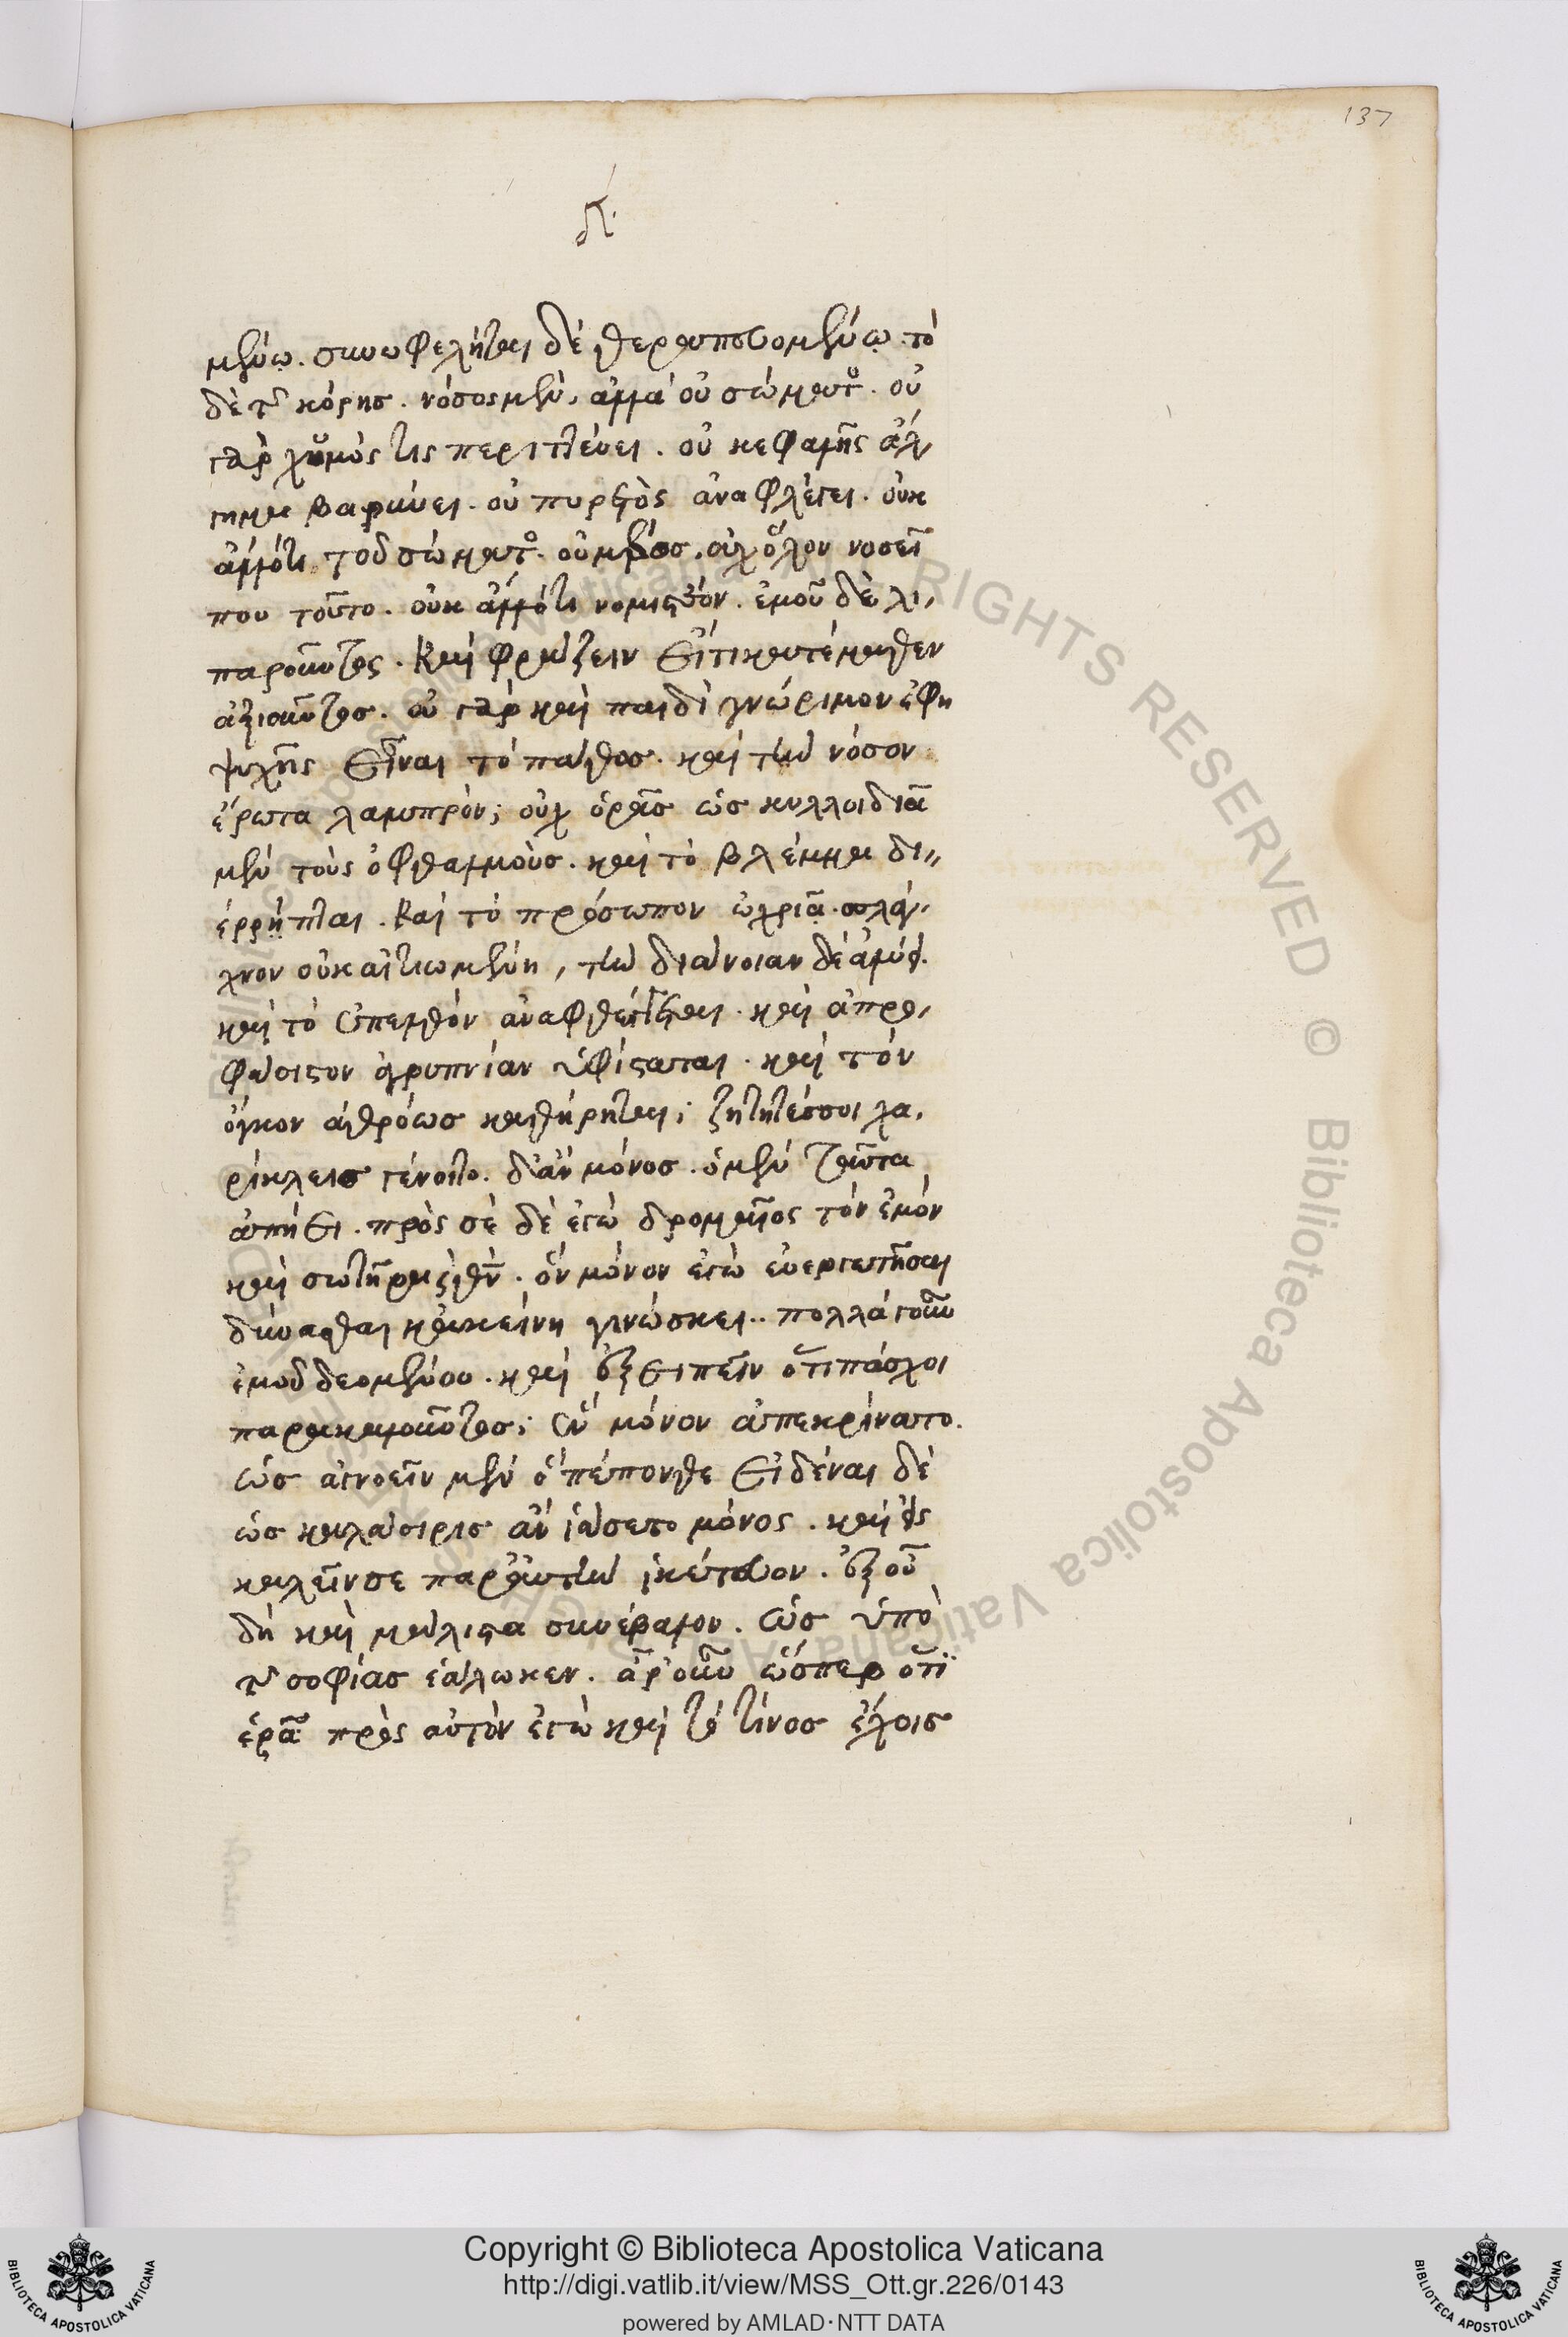 137
δ.
μένῳ. συνωφελῆται δὲ θεραπευομένῳ. τὸ
δὲ τῆς κόρης. νόσος μὲν, ἀλλὰ οὐ σώματος. οὐ
γὰρ χυμός τις περιττεύει. οὐ κεφαλῆς ἄλ,
γημα βαρύνει. οὐ πυρετὸς ἀναφλέγει. οὐκ
ἄλλό τι τοῦ σώματος. οὐ μέρος. οὐχ ὅλον νοσεῖ
που τοῦτο. οὐκ ἄλλό τι νομιστέον. ἐμοῦ δὲ λι,
παροῦντος. καὶ φράζειν εἴ τι κατέμαθεν
ἀξιοῦντος. οὐ γὰρ καὶ παιδὶ γνώριμον ἔφη
ψυχῆς εἶναι τὸ πάθος. καὶ τὴν νόσον
ἔρωτα λαμπρόν; οὐχ ὁρᾷς ὡς κυλλοιδιᾶ
μὲν τοὺς ὀφθαλμούς. καὶ τὸ βλέμμα δι,,
έρριπται. καὶ τὸ πρόσωπον ὠχριᾷ. σπλάγ,
χνον οὐκ αἰτιωμένη, τὴν διάνοιαν δὲ ἀλύει.
καὶ τὸ ἐπελθὸν ἀναφθέγγεται. καὶ ἀπρο,
φάσιστον ἀγρυπνίαν ὑφίσταται. καὶ τὸν
ὄγκον ἀθρόως καθήρηται; ζητητέος σοι χα,
ρίκλεις γένοιτο δ' ἂν μόνος. ὁ μὲν ταῦτα
ἀπῄει. πρὸς σὲ δὲ ἐγὼ δρομαῖος τὸν ἐμὸν
καὶ σωτῆρα καὶ θεόν. ὃν μόνον ἐγὼ εὐεργετῆσαι
δύνασθαι κἀκείνη γινώσκει.. πολλὰ γοῦν
ἐμοῦ δεομένου. καὶ ἐξειπεῖν ὅ τι πάσχοι
παρακαλοῦντος; ἓν μόνον ἀπεκρίνατο.
ὡς ἀγνοεῖν μὲν ὃ πέπονθε εἰδέναι δὲ
ὡς καλάσιρις ἂν ἰάσετο μόνος. καὶ εἰς
καλεῖν σε παρ' αὐτὴν ἱκέτευον. ἐξ οὗ
δὴ καὶ μάλιστα συνέβαλον. ὡς ὑπὸ
τῆς σοφίας ἑάλωκεν. ἆρ' οὖν ὥσπερ ὅτι
ἐρᾷ πρὸς αὐτὸν ἐγὼ καὶ τό τίνος ἔχοις
Copyright © Biblioteca Apostolica Vaticana
http://digi.vatlib.it/view/MSS_Ott.gr.226/0143
powered by AMLAD·NTT DATA